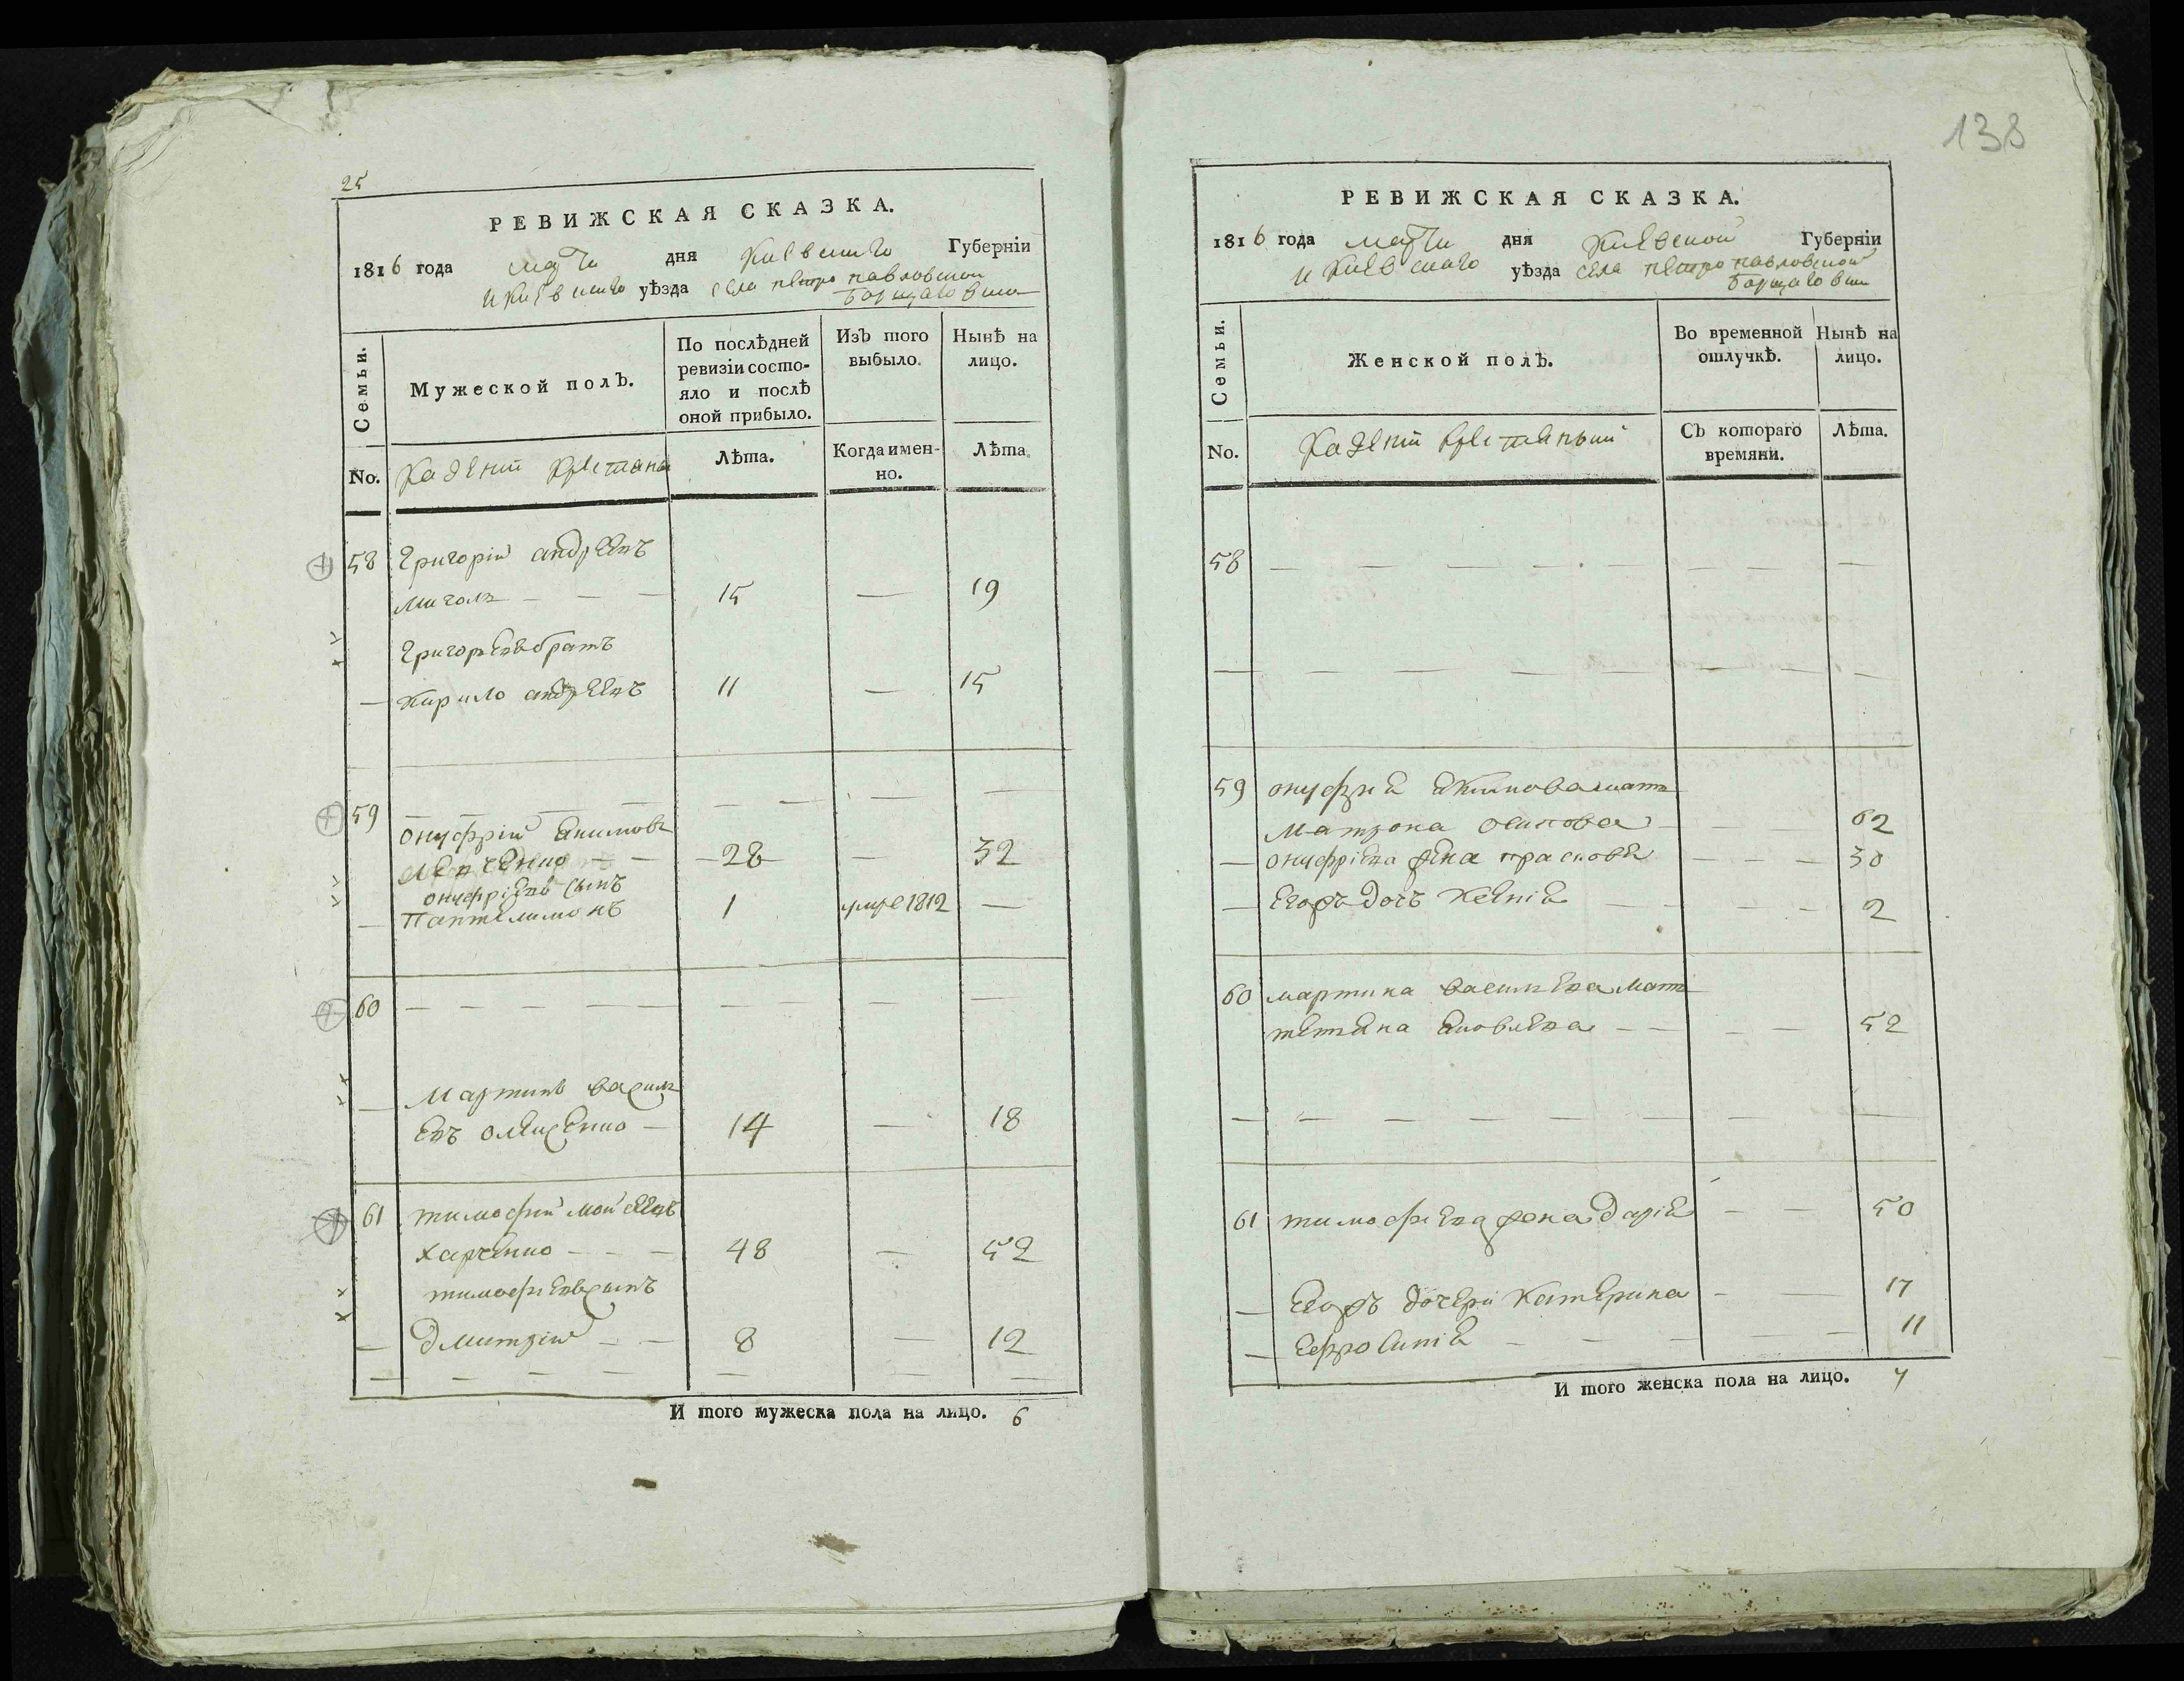 25
РЕВИЖСКАЯ СКАЗКА.
1816 года марта дня Киевской Губерніи
и Киевскаго уѣзда села петро павловской
Борщаговки
Семьи.
Мужеской полъ.
По послѣдней ревизіи состояло и послѣ оной прибыло.
Изъ того выбыло.
Нынѣ на лицо.
No.
Казеніи крестяни
Лѣта.
Когда именно.
Лѣта.
58 Григорій андреевъ
15 — 19
Григорьевъ братъ
— Кирило андреевъ 11 — 15
59 — — — — — — — —
Онуфрій Якимовъ
28 — 32
онуфріевъ сынъ
— Пантелимонъ 1 умре 1812 —
60 — — — — — — — —
— Мартинъ василь
евъ олексенко — 14 — 18
61 тимофий мойсеевъ
харченко — — — 48 — 52
тимофиевъ сынъ
— Дмитрій — — 8 — 12
— — — — — — —
И того мужеска пола на лицо. 6
138
РЕВИЖСКАЯ СКАЗКА.
1816 года марта дня Киевской Губерніи
и Киевскаго уѣзда села петро павловской
Борщаговки
Семьи.
Женской полъ.
Во временной отлучкѣ.
Нынѣ на лицо.
No.
Казеніи крестяныи
Съ котораго времяни.
Лѣта.
58 — — — — — — — — —
— — — — — — — — —
59 онуфрия якимова мать
Матрона осипова — — — 62
— онуфріева жена прасковя — — — 30
— Егожъ дочь Ксенія — — — — 2
60 мартина васильева мать
тетяна яковлева — — — — 52
— — — — — — — —
61 тимофиева жена дарія — — 50
— Егожъ дочери Катерина — — 17
— Ефросинія — — — — — 11
И того женска пола на лицо. 7